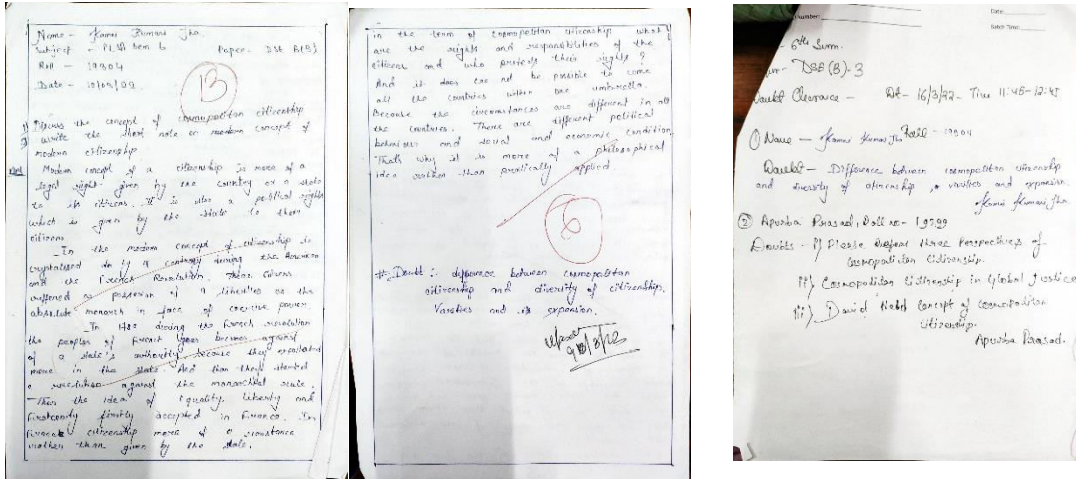 Name - Kumari Jha
Subject - PLSA Sem 6 Paper - DSE B(3)
Roll - 19304
Date -
13
1) Discuss the concept of cosmopolitan citizenship
2) write the short note on modern concept of
modern citizenship
Modern concept of a citizenship is more of a
legal right given by one country or a state
to its citizens. It is also a political rights
which is given by the state to their
citizens
In the modern concept of citizenship is
crystalised in by a century during the American
and the French Revolution. These citizens
reffered as possession of a liberties on the
absolute monarch in face of coercive power.
In 1789 during the French revolution
the peoples of against
of a state's authority because they exploited
more in the state. And than they started
a revolution against the monarchal rule.
Thus the idea of equality, liberty and
firstly accepted in France. In
citizenship more of a
rather than given by the state.
in the term of cosmopolitan citizenship what
are the rights and responsibilities of the
citizen and who protests their rights?
And it does not be possible to come
all the countries within one umbrella.
Because the circumstances are different in all
the countries. There are different political
behaviour and social and economic condition
That's why it is more of a philosophical
idea rather than practically applied
6
# Doubt :- difference between cosmopolitan
citizenship and diversity of citizenship.
Varsities and its expansion.
Number: Date:
Batch Time:
- 6th Sem.
- DSE (B)-3
Doubt Clearance - Dt - 16/3/22 - Time 11:45-12:45
① Name - Kumari Jha Roll - 19304
Doubt - Difference between cosmopolitan citizenship
and diversity of citizenship, varsities and expansion.
Kumari Jha
② Apurba Prasad, Roll no - 19599
Doubts - i) Please Repeat three Perspectives of
Cosmopolitan Citizenship.
ii) Cosmopolitan Citizenship in Global Justice
iii) David Held concept of cosmopolitan
Citizenship.
Apurba Prasad.